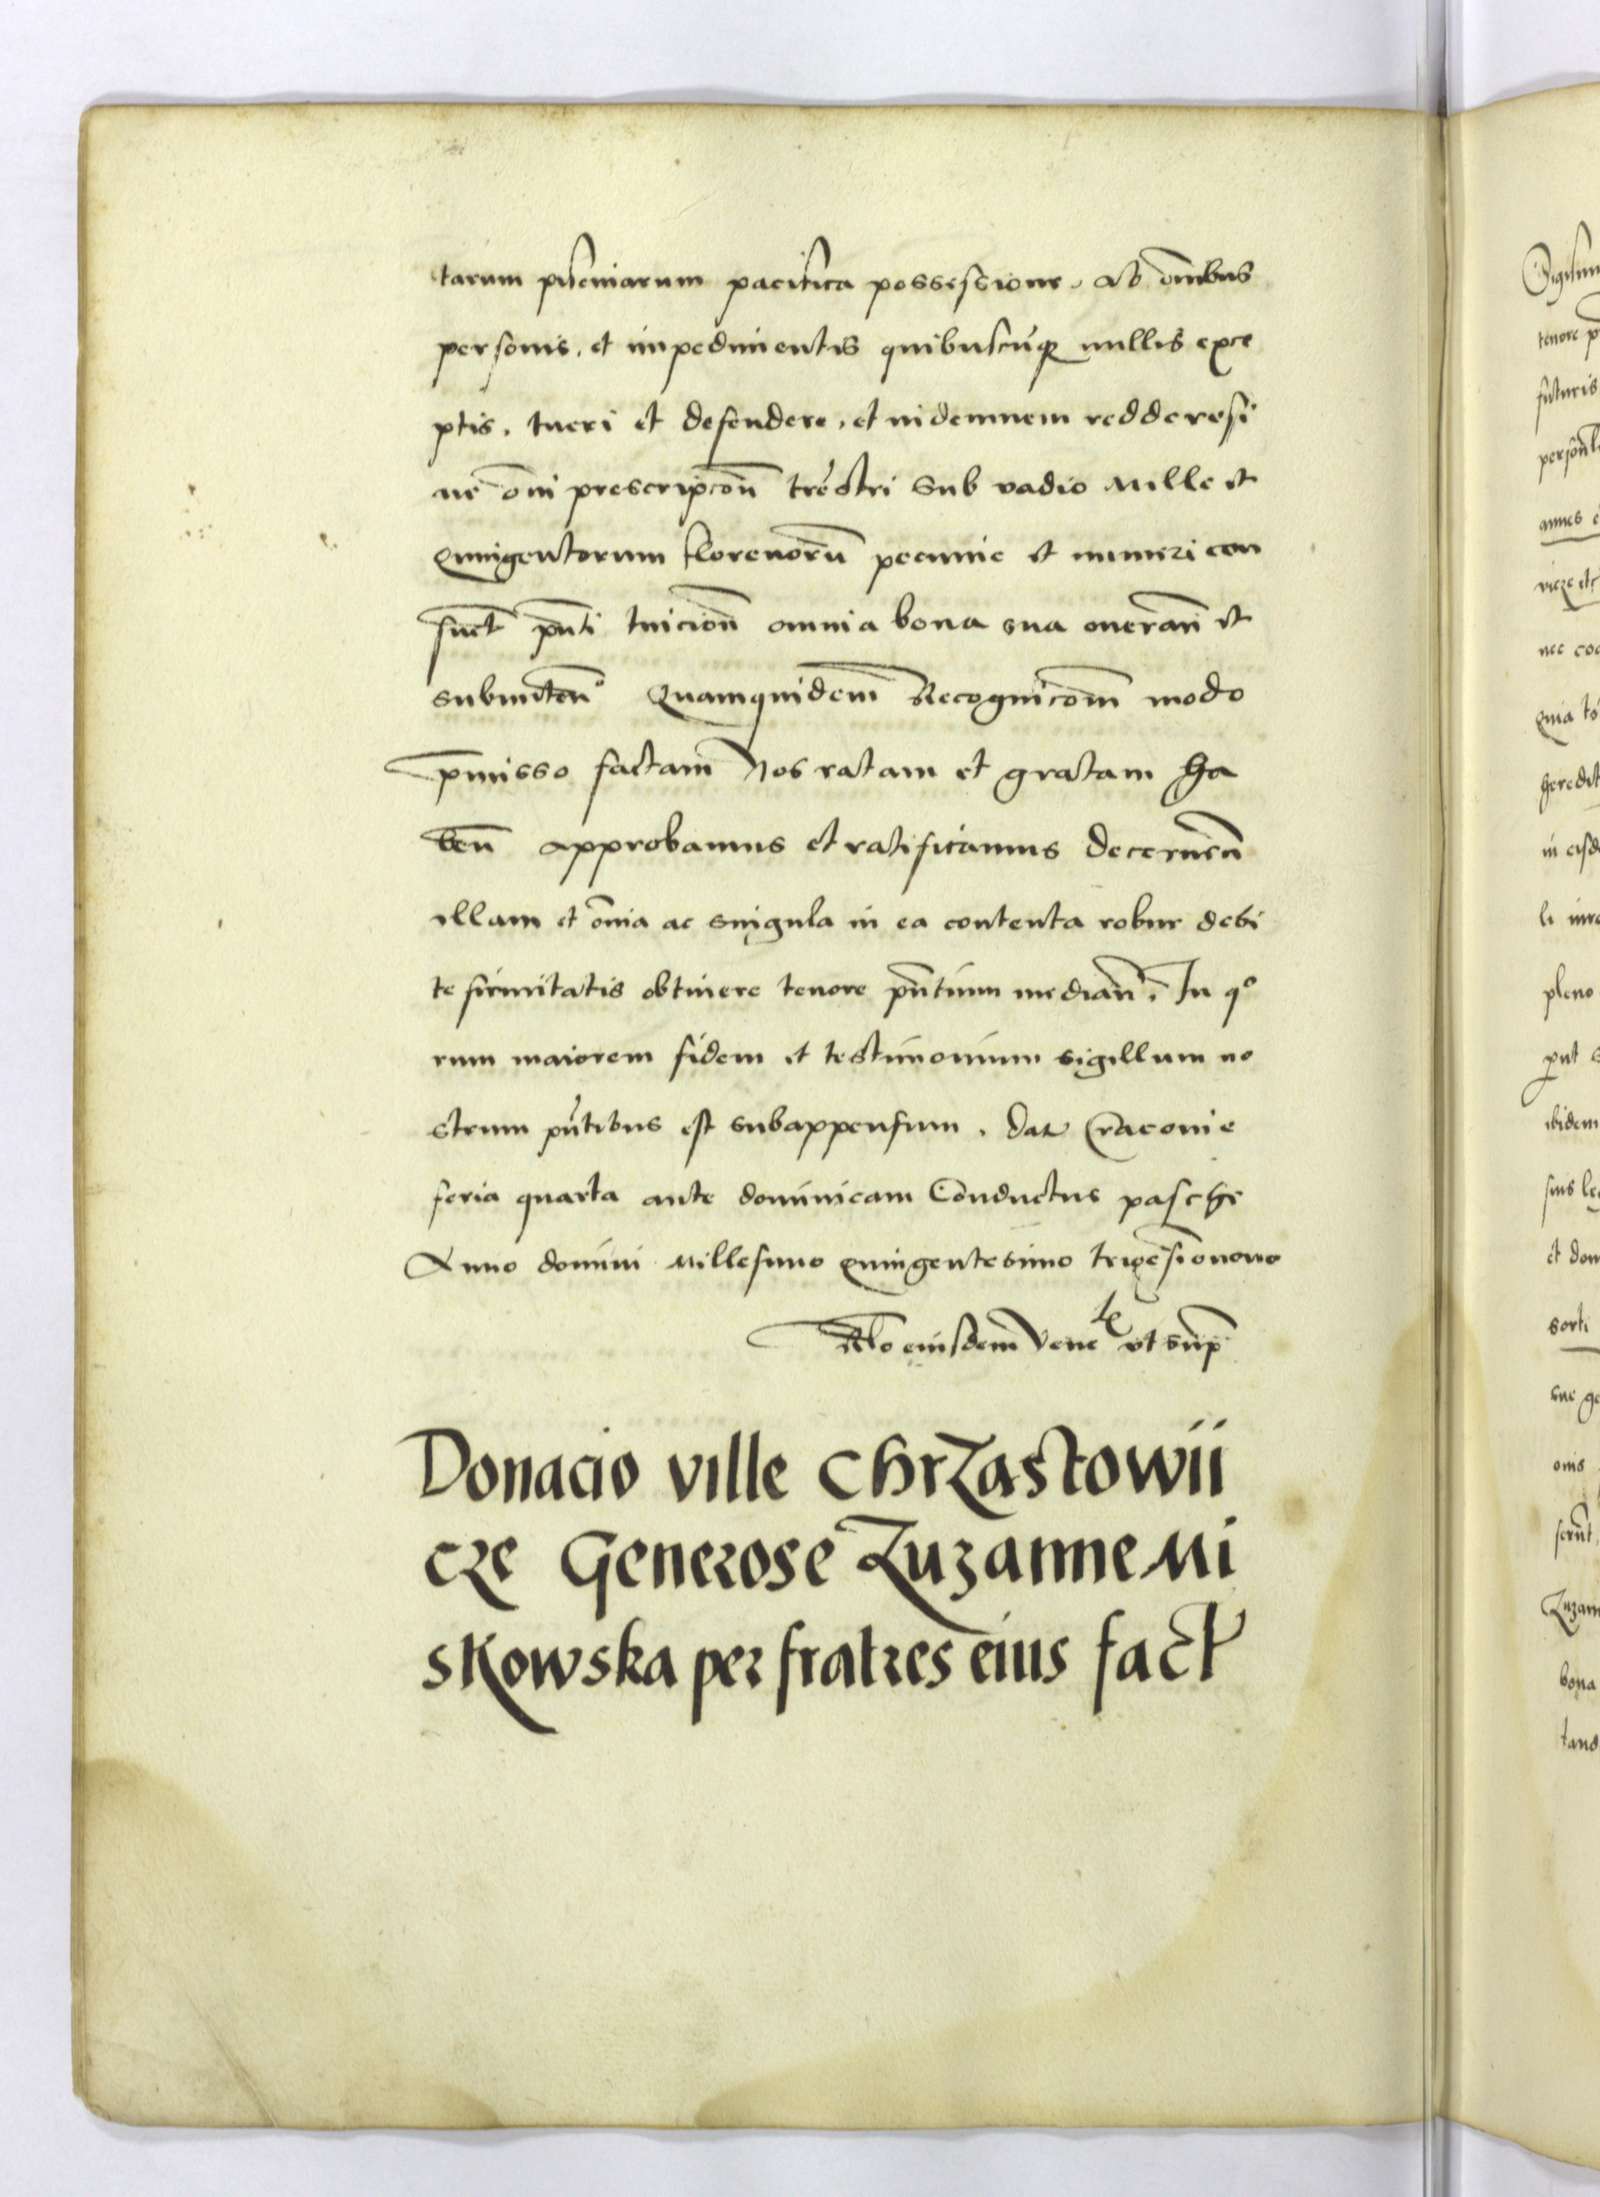 tarum pisciniarum pacifica possessione. Ab om̄ibus
personis. et impedimentis quibuscūq nullis exce
ptis. tueri et defendere. et indemnem reddere si
ne om̄i prescripcoñ trrestri sub vadio Mille et
Quingentorum florenorū pecunie et numeri con
suet pn̄ti tuicioñ omnia bona sua onerañ et
submitteñ Quamquidem̄ Recognicōm modo
p̄misso factam Nos ratam et gratam ha
beñ approbamus et ratificamus decerneñ
illam et om̄ia ac singula in ea contenta robur debi
te firmitatis obtinere tenore pn̄tium mediañ. In qo
rum maiorem fidem et testimonium sigillum no
strum pn̄tibus est subappensum. Dat Cracouie
feria quarta ante dominicam Conductus pasche
Anno domini Millesimo quingentesimo tricesimonono
Rlo eiusdem Vene ut sup̄
Donacio ville Chrzastowii
cze Generose Zuzanne Mi
skowska per fratres eius fact
Sigismu
tenore p
futuris
personl
annes
nec coa
quia
heredit
in eisd
pleno
ibidem
suis le
et dom
sorti
sue ge
Zuzan
bona
tand